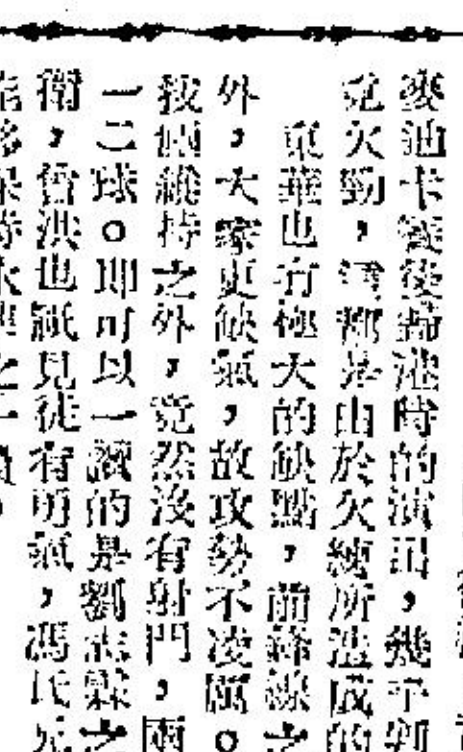 麥迪卡賽後歸港時的演出,幾乎
欠勁,這都是由於欠練所造成的
東華也有極大的缺點,前鋒線之
外,大家更缺氣,故攻勢不凌厲。
維持之外,竟然沒有射門,兩
一二球。即可以一讚的是劉志霖之
衛,曾洪也祗見徒有勇氣,馮氏兄